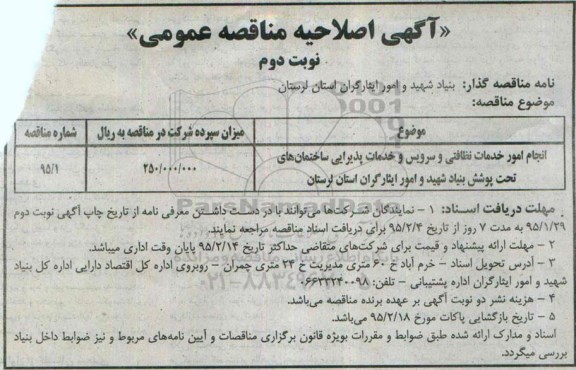 «آگهی اصلاحیه مناقصه عمومی»
نوبت دوم
نامه مناقصه گذار: بنیاد شهید و امور ایثارگران استان لرستان
موضوع مناقصه:
موضوع	میزان سپرده شرکت در مناقصه به ریال	شماره مناقصه
انجام امور خدمات نظافتی و سرویس و خدمات پذیرایی ساختمان‌های
تحت پوشش بنیاد شهید و امور ایثارگران استان لرستان	۲۵۰/۰۰۰/۰۰۰	۹۵/۱
مهلت دریافت اسناد: ۱ – نمایندگان شرکت‌ها می‌توانند با در دست داشتن معرفی نامه از تاریخ چاپ آگهی نوبت دوم
۹۵/۱/۲۹ به مدت ۷ روز از تاریخ ۹۵/۲/۴ برای دریافت اسناد مناقصه مراجعه نمایند.
۲ – مهلت ارائه پیشنهاد و قیمت برای شرکت‌های متقاضی حداکثر تاریخ ۹۵/۲/۱۴ پایان وقت اداری میباشد.
۳ – آدرس تحویل اسناد – خرم آباد خ ۶۰ متری مدیریت خ ۲۴ متری چمران – روبروی اداره کل اقتصاد دارایی اداره کل بنیاد
شهید و امور ایثارگران اداره پشتیبانی – تلفن: ۰۶۶۳۳۲۴۰۰۹۸
۴ – هزینه نشر دو نوبت آگهی بر عهده برنده مناقصه می‌باشد.
۵ – تاریخ بازگشایی پاکات مورخ ۹۵/۲/۱۸ می‌باشد.
اسناد و مدارک ارائه شده طبق ضوابط و مقررات بویژه قانون برگزاری مناقصات و آیین نامه‌های مربوط و نیز ضوابط داخل بنیاد
بررسی میگردد.
ParsNamadData